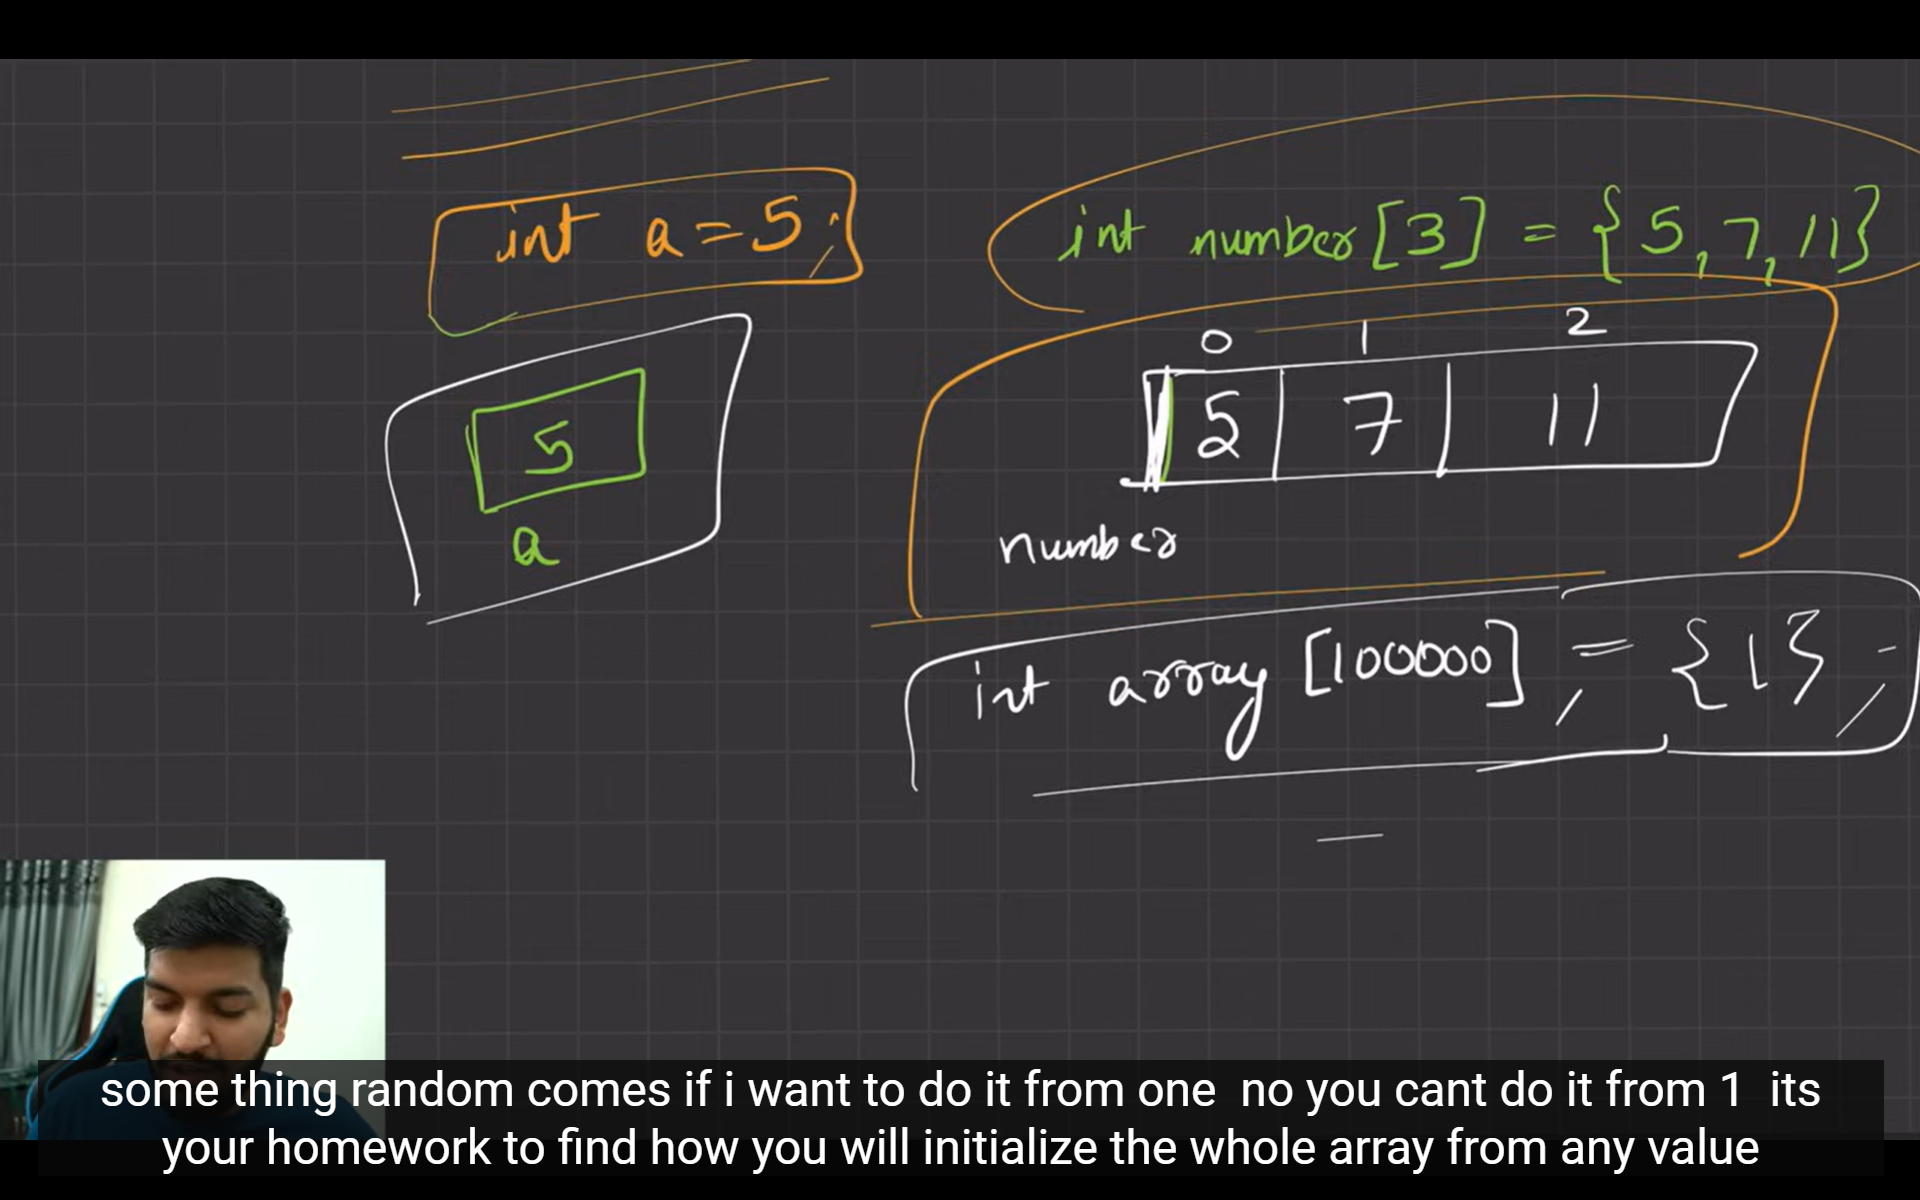 int a = 5;
5
a
int number[3] = {5, 7, 11}
0 1 2
5 7 11
number
int array [100000], = {1};
some thing random comes if i want to do it from one no you cant do it from 1 its
your homework to find how you will initialize the whole array from any value